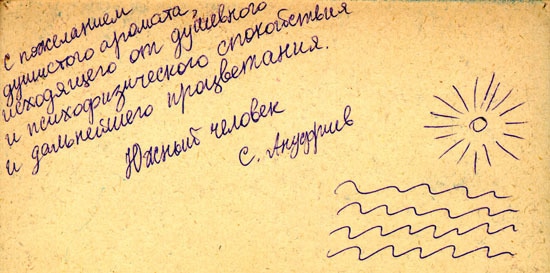 С пожеланием
душистого аромата
исходящего от душевного
и психофизического спокойствия
и дальнейшего процветания.
Южный человек
С. Ануфриев